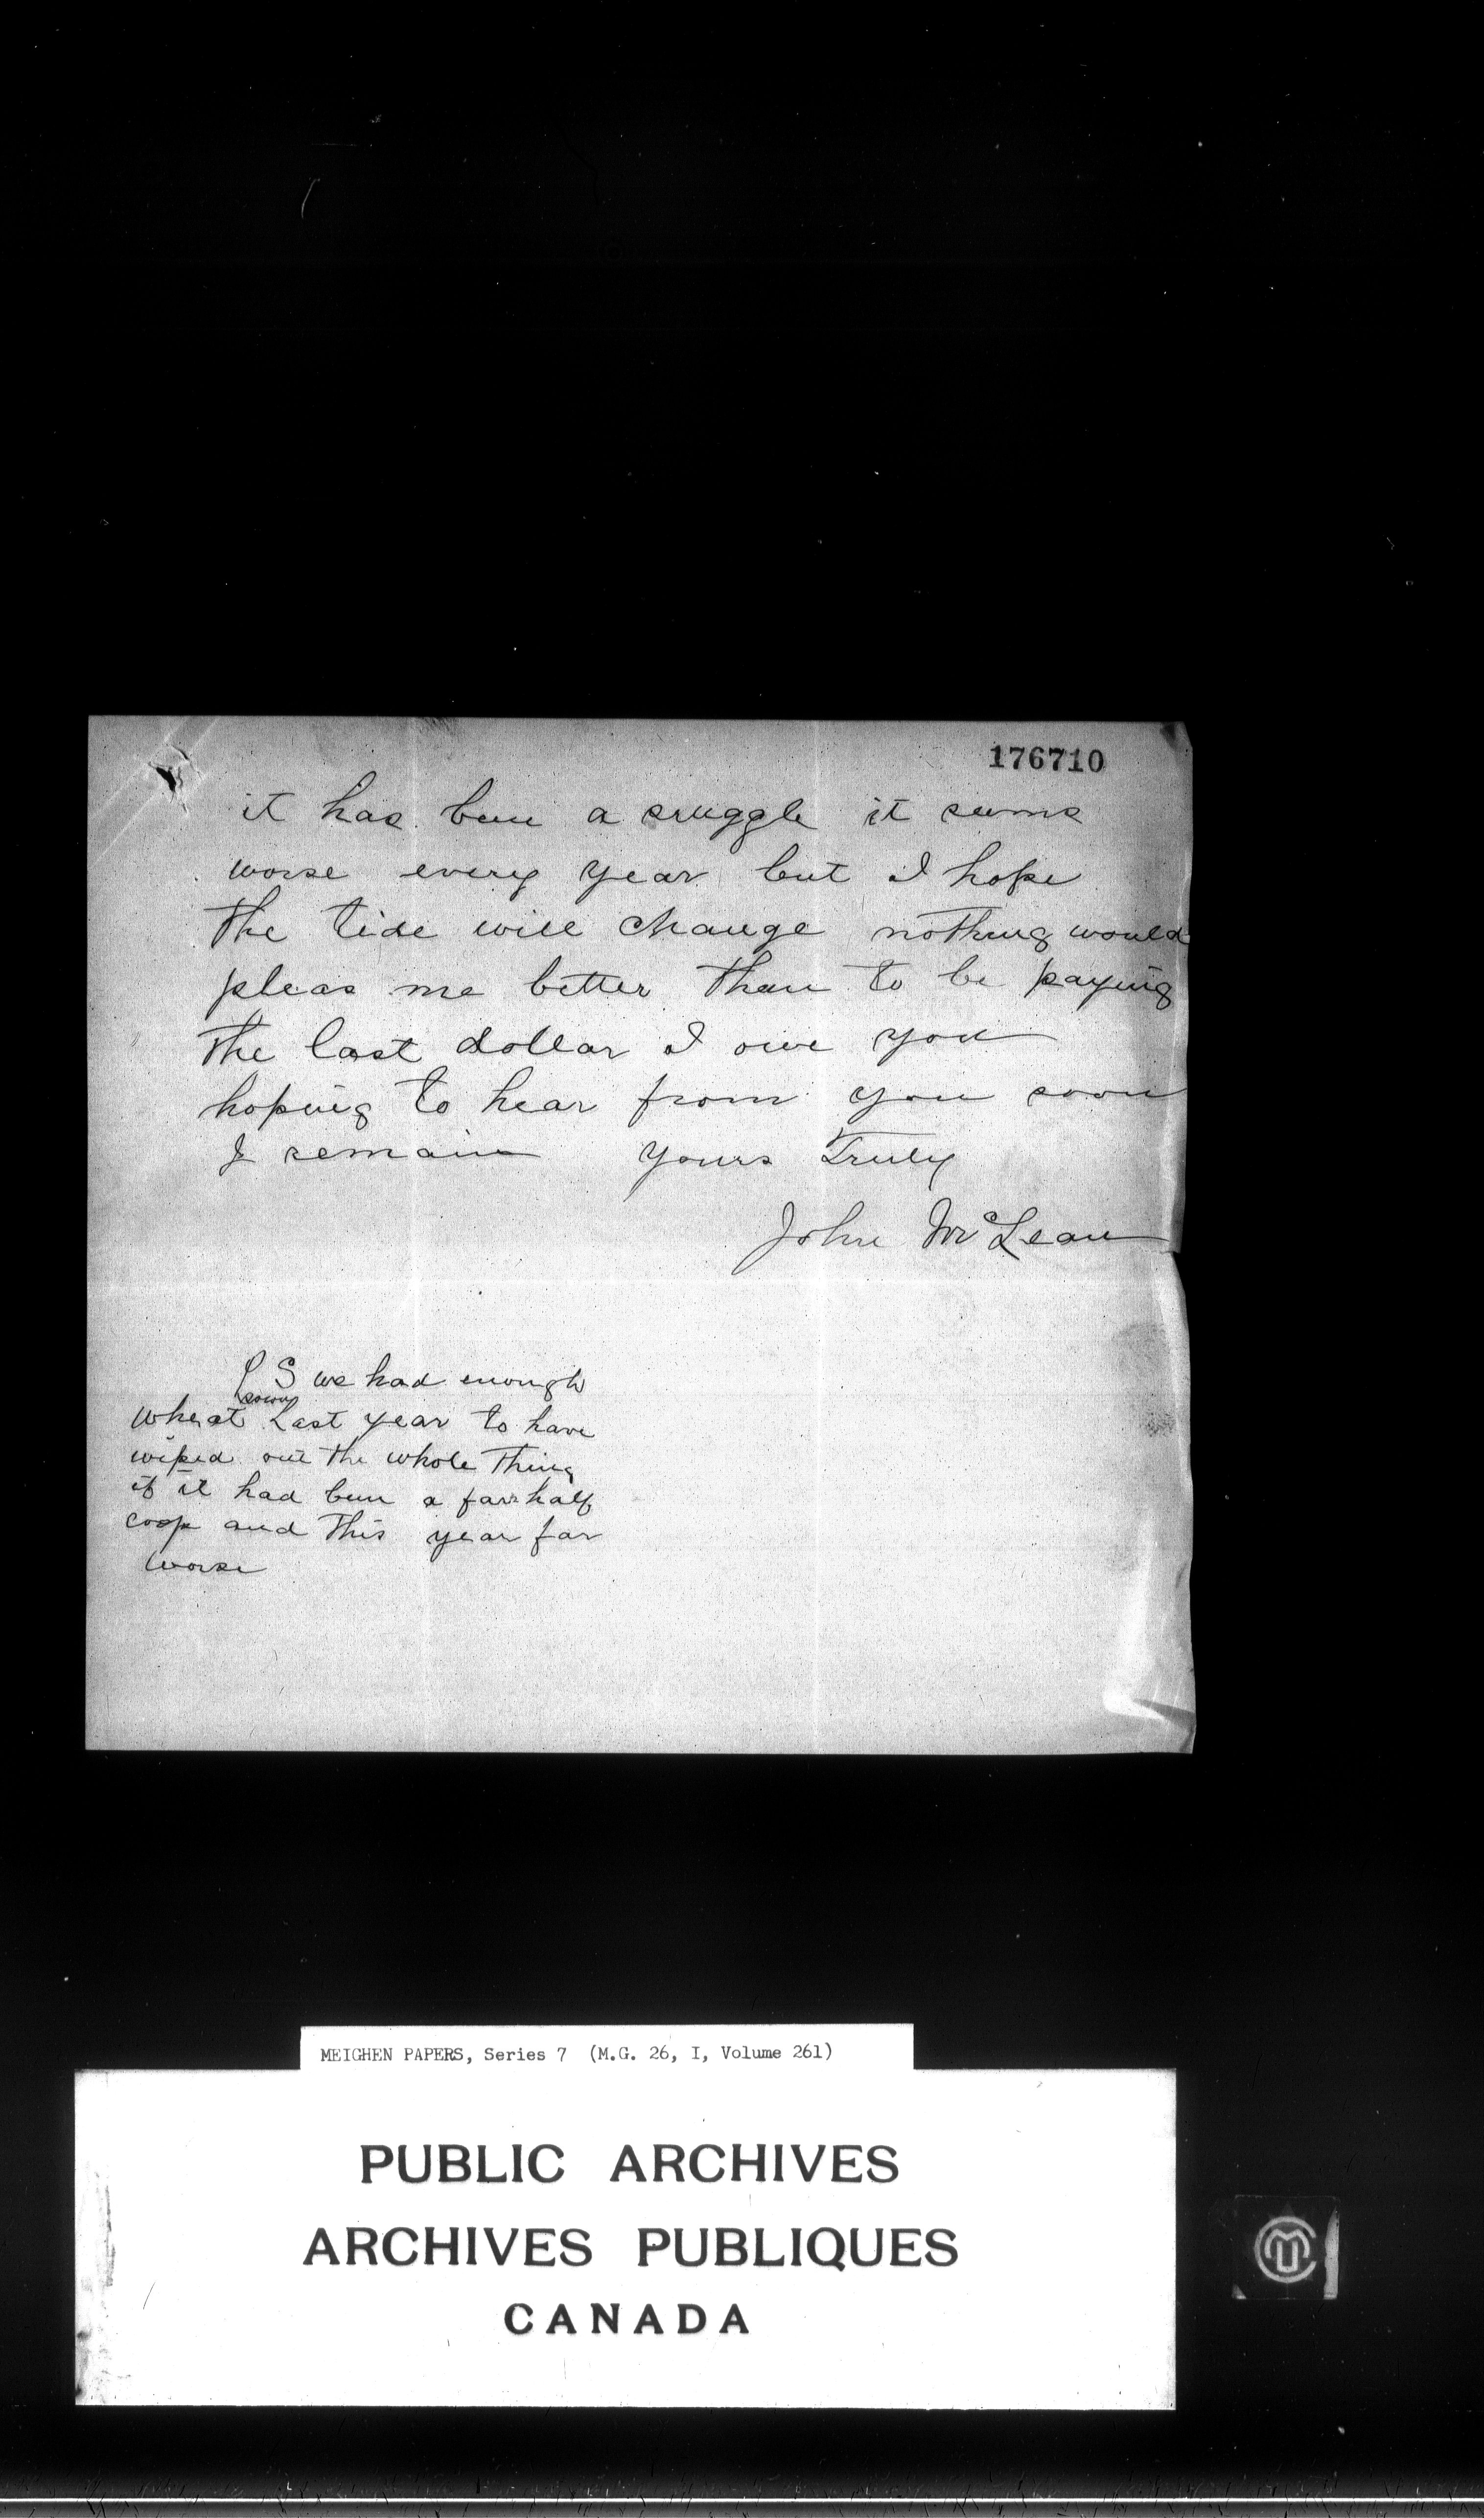 176710
it has been a sruggle it seems
worse every year but I hope
the tide will change nothing would
pleas me better than to be paying
the last dollar I owe you
hoping to hear from you soon
I remain yours Truly
John McLean
P S we had enough
sown
wheat Last year to have
wiped out the whole thing
if it had been a fair half
crop and this year far
worse
MEIGHEN PAPERS, Series 7 (M.G. 26, I, Volume 261)
PUBLIC ARCHIVES
ARCHIVES PUBLIQUES
CANADA